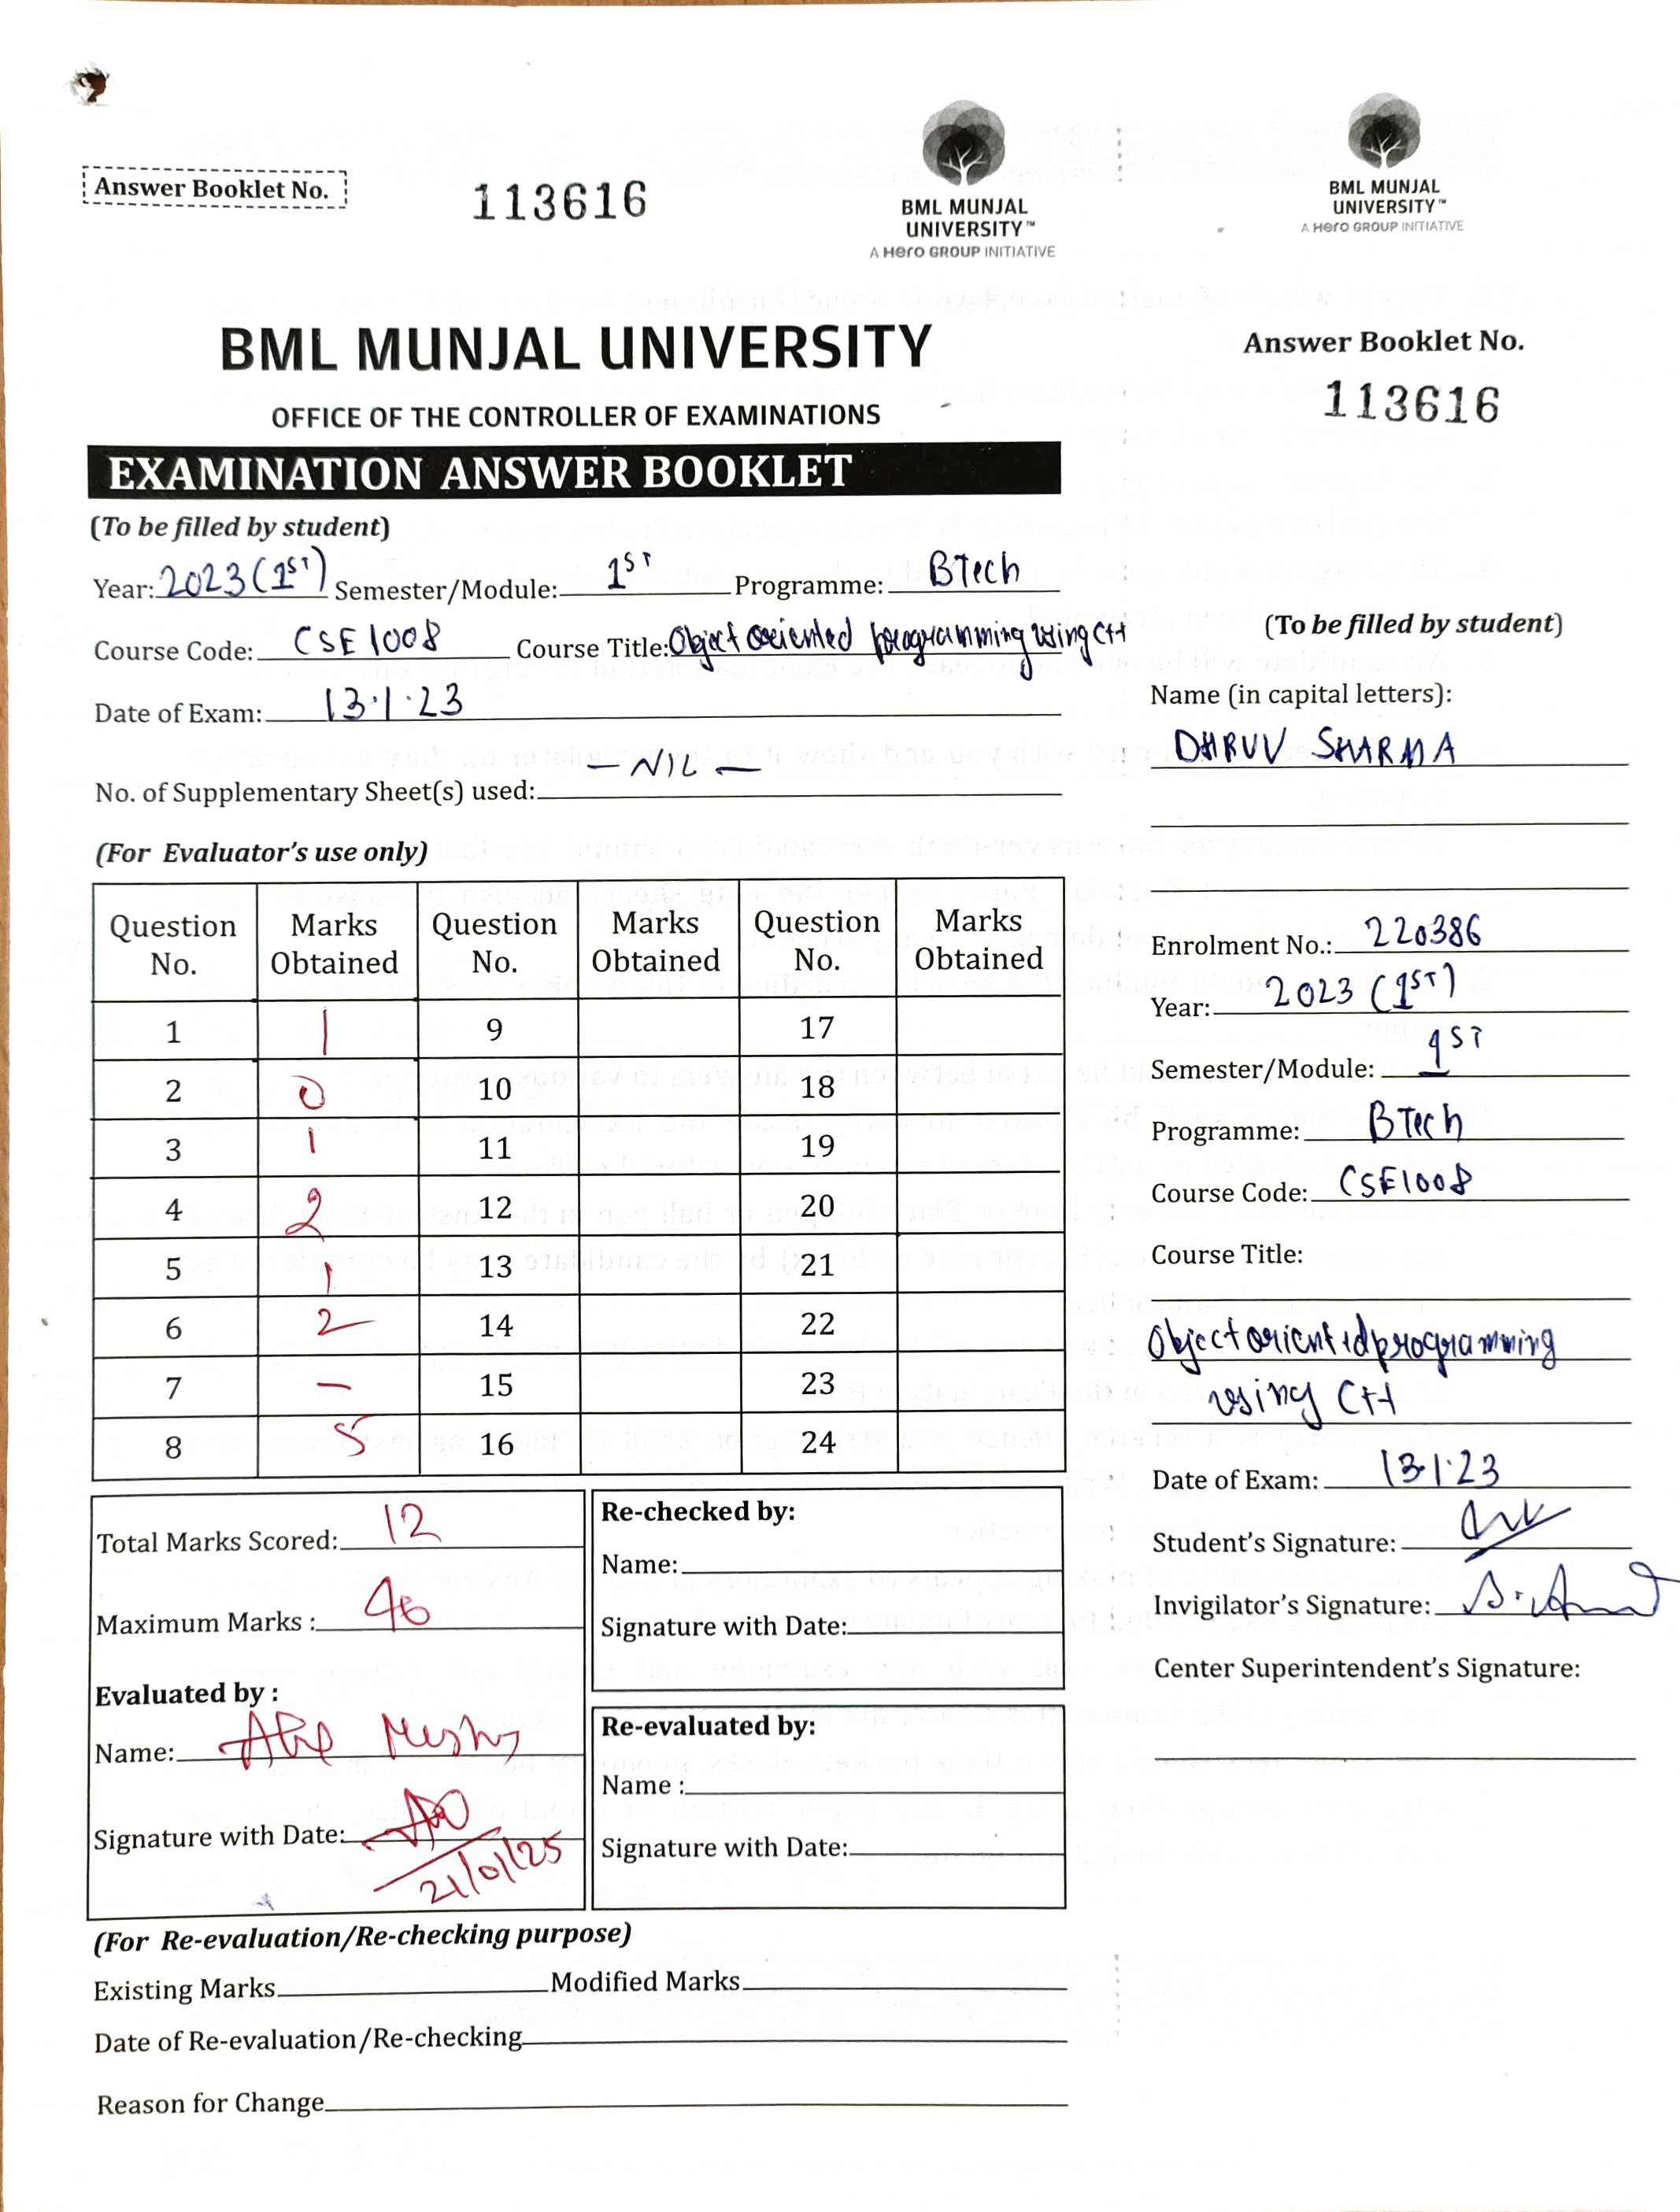 Answer Booklet No.
113616
BML MUNJAL
UNIVERSITY™
A Hero GROUP INITIATIVE
BML MUNJAL
UNIVERSITY™
A Hero GROUP INITIATIVE
BML MUNJAL UNIVERSITY
OFFICE OF THE CONTROLLER OF EXAMINATIONS
EXAMINATION ANSWER BOOKLET
(To be filled by student)
Year: 2023 (1ST) Semester/Module: 1ST Programme: BTech
Course Code: CSE1008 Course Title: Object oriented programming using C++
Date of Exam: 13.1.23
No. of Supplementary Sheet(s) used: - NIL -
(For Evaluator's use only)
Question No. Marks Obtained Question No. Marks Obtained Question No. Marks Obtained
1 1 9 17
2 0 10 18
3 1 11 19
4 2 12 20
5 1 13 21
6 2 14 22
7 - 15 23
8 5 16 24
Total Marks Scored: 12
Maximum Marks : 40
Evaluated by :
Name:
Signature with Date: 21/01/25
Re-checked by:
Name:
Signature with Date:
Re-evaluated by:
Name :
Signature with Date:
(For Re-evaluation/Re-checking purpose)
Existing Marks Modified Marks
Date of Re-evaluation/Re-checking
Reason for Change
Answer Booklet No.
113616
(To be filled by student)
Name (in capital letters):
DHRUV SHARMA
Enrolment No.: 220386
Year: 2023 (1ST)
Semester/Module: 1ST
Programme: BTech
Course Code: CSE1008
Course Title:
Object oriented programming
using C++
Date of Exam: 13.1.23
Student's Signature:
Invigilator's Signature:
Center Superintendent's Signature: